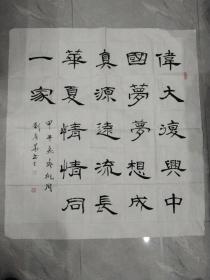 偉大復興中
國夢夢想成
真源遠流長
華夏情情同
一家
甲午